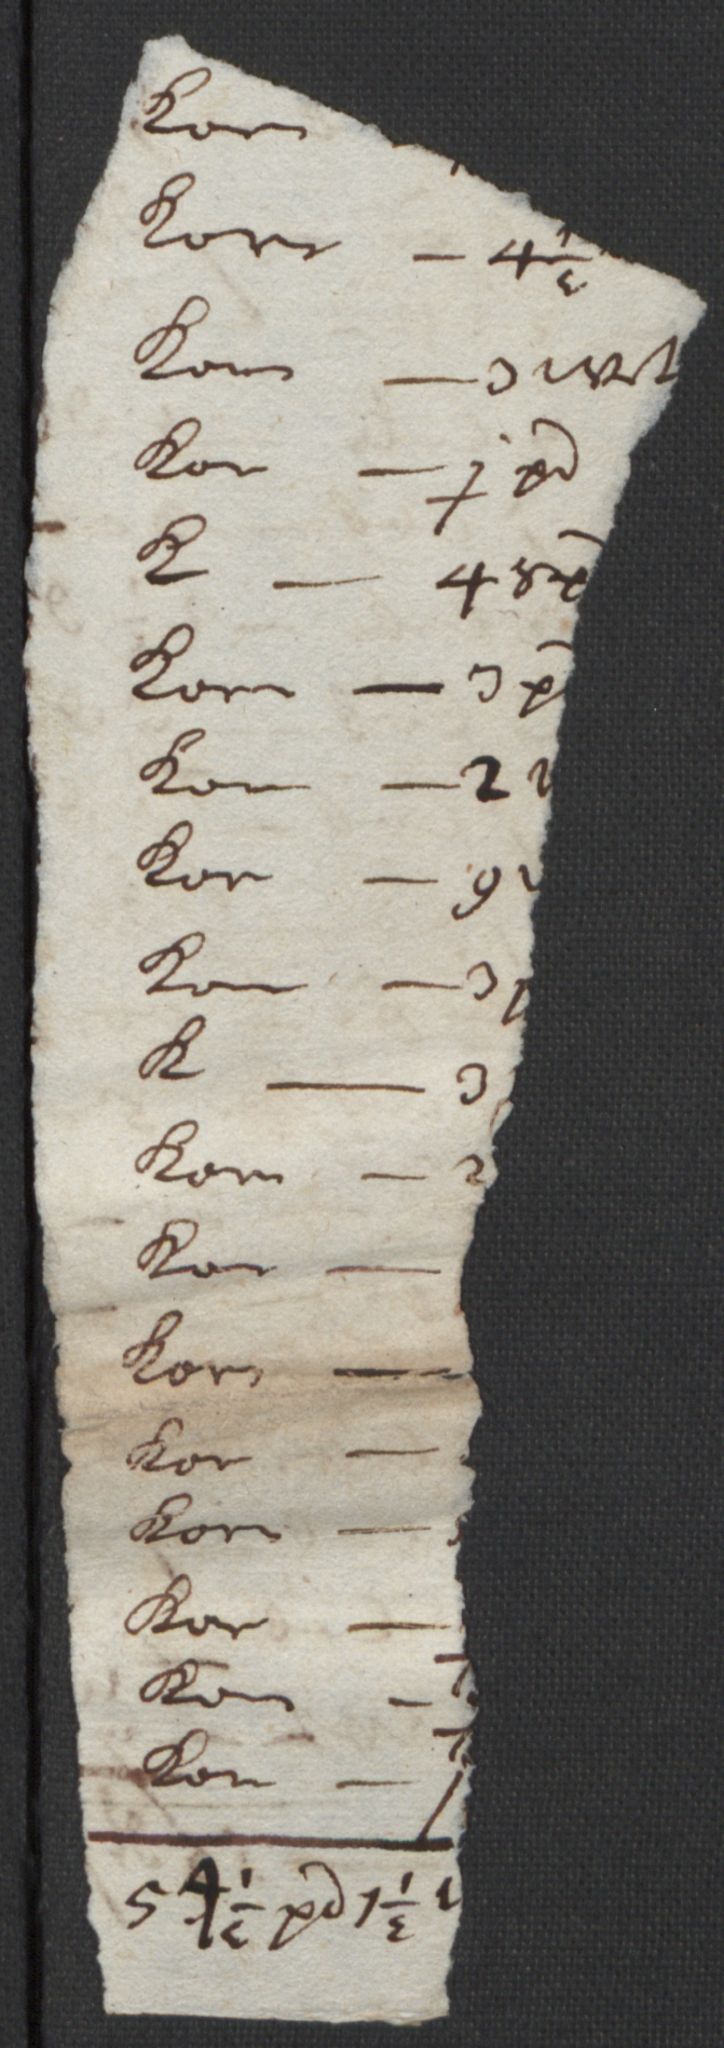 Korn
Korn — 4 1/2
Korn — 3 
Kor — j pd
K — 4
Korn — 3 p
Korn — 2
Kor — 9
Korn — 3 p
K — 3
Korn — 2
Kor —
Korn —
Kor —
Korn —
Kor —
Korn —
Kor —
54 1/2 pd 1 1/2